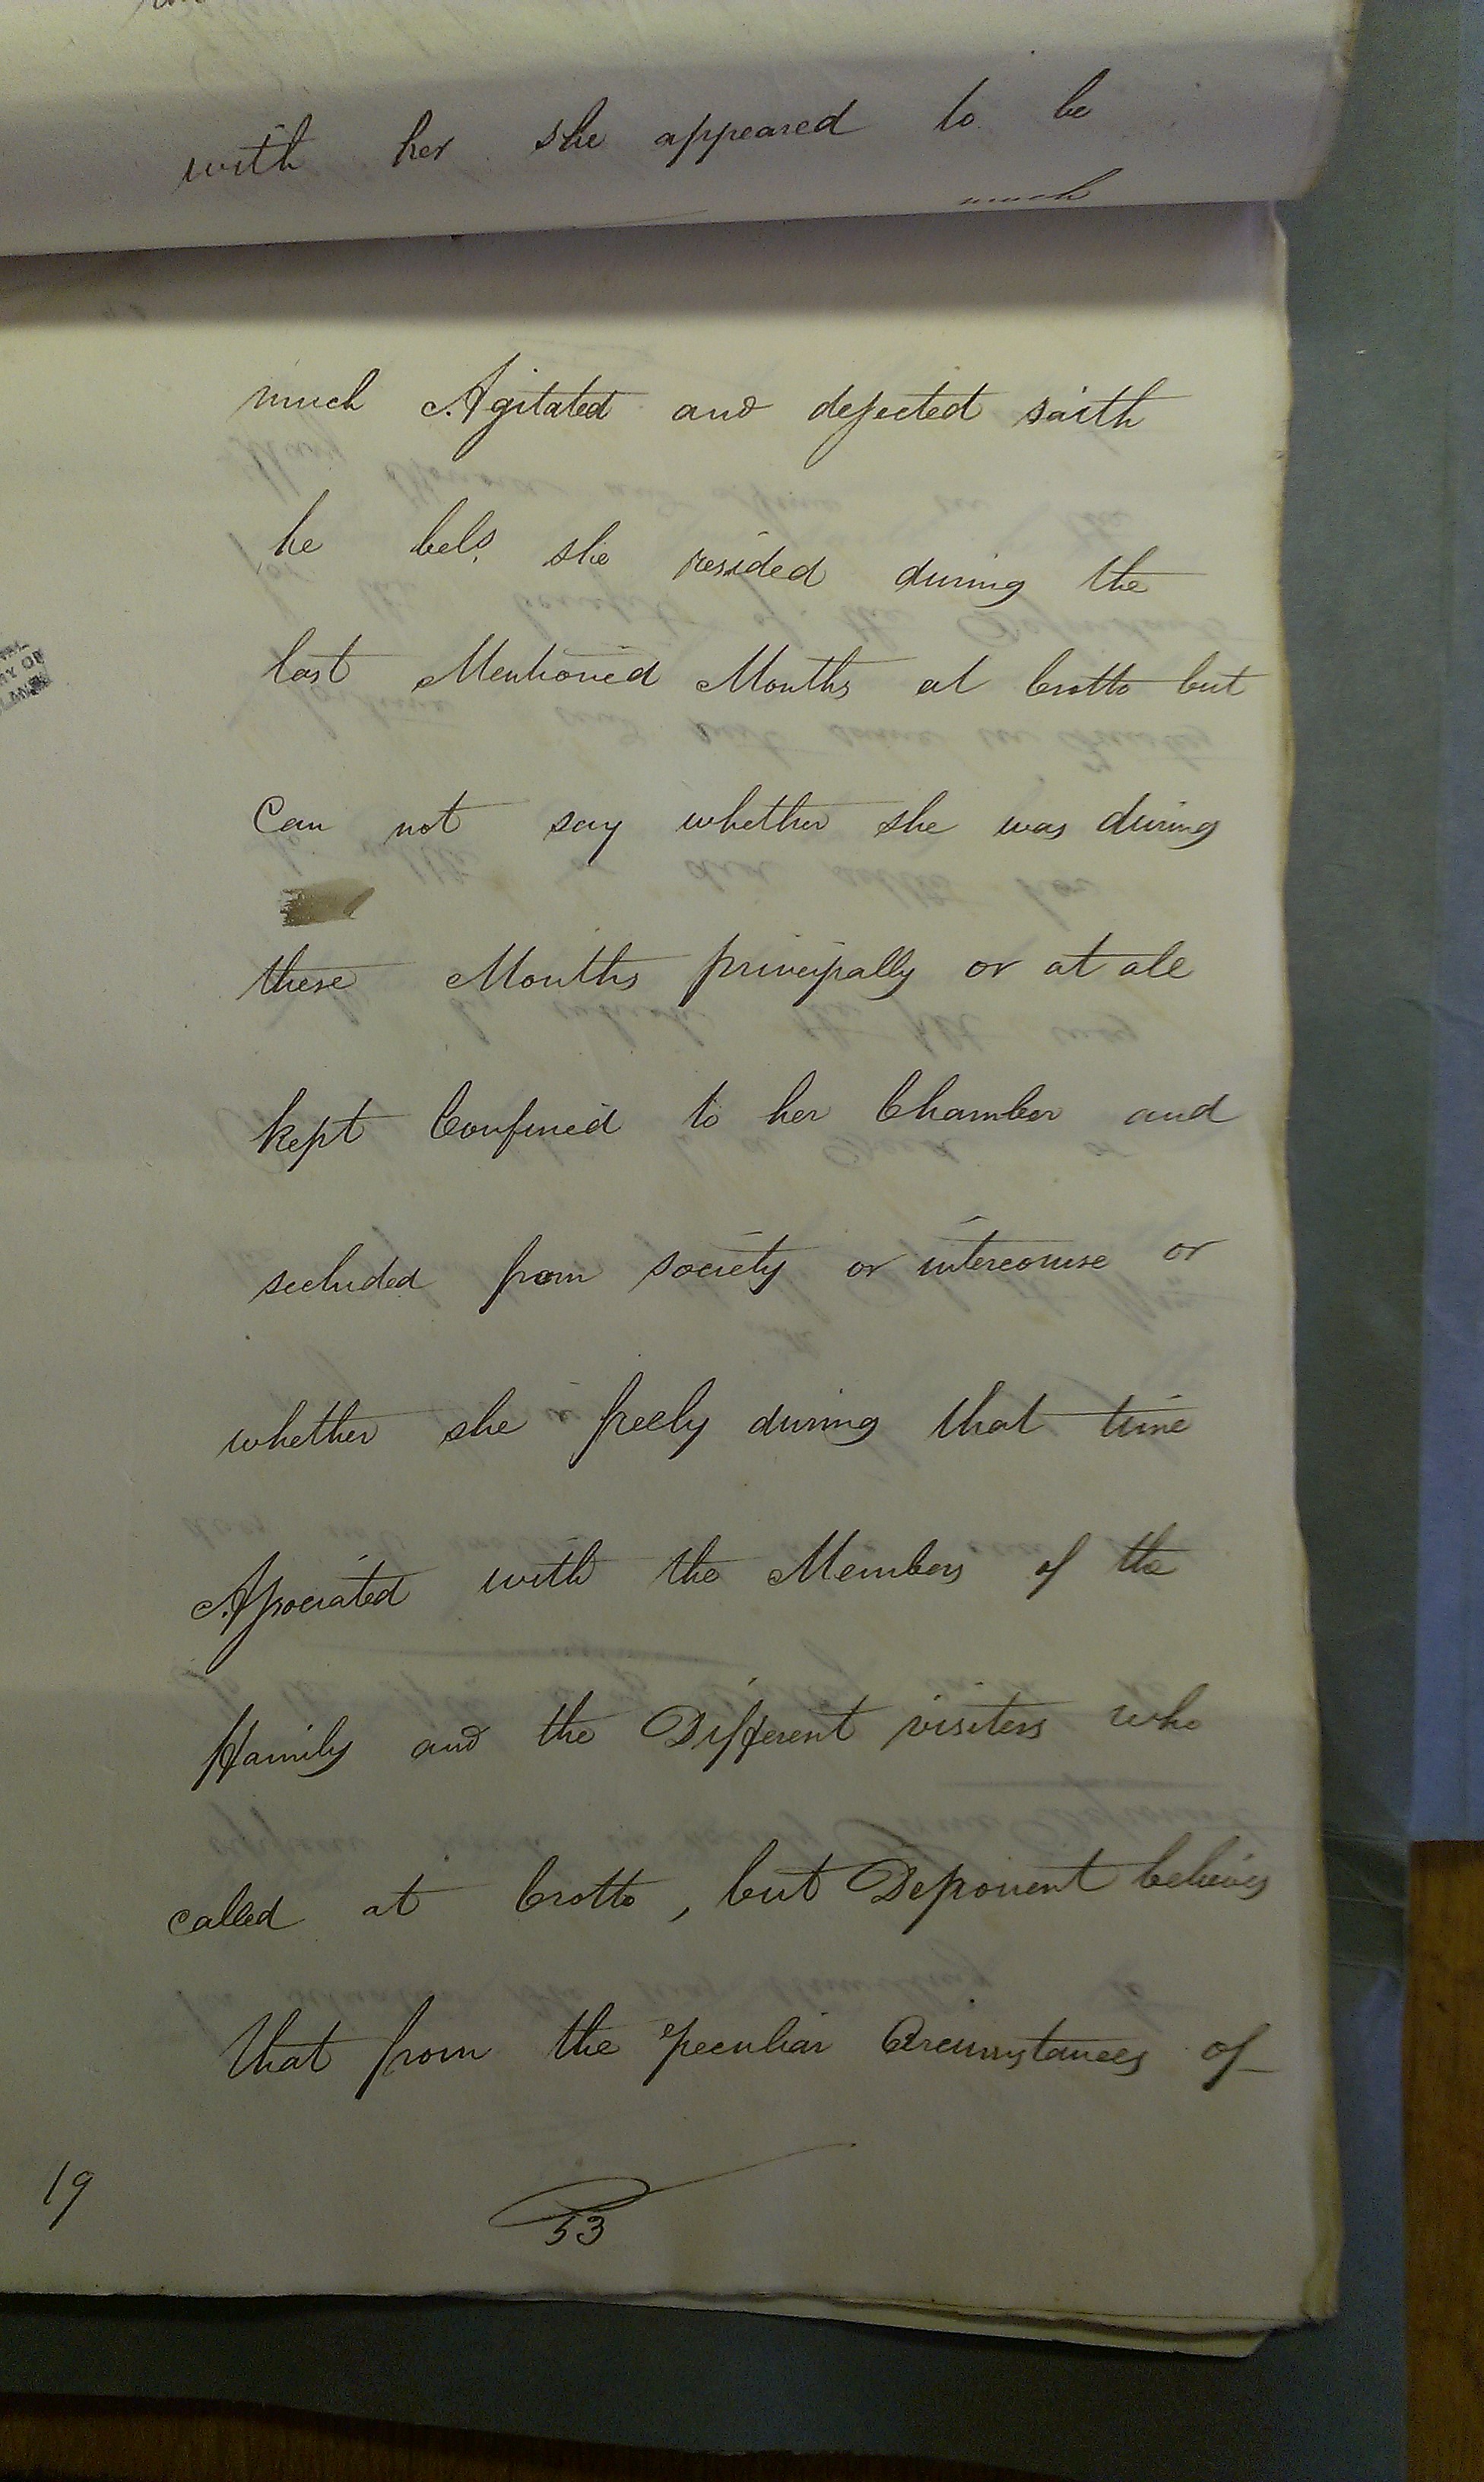 with her she appeared to be
much
much Agitated and dejected saith
he bels. she resided during the
last Mentioned Months at Crotto but
Can not say whether she was during
these Months principally or at all
kept Confined to her Chamber and
secluded from society or intercourse or
whether she freely during that time
Associated with the Members of the
family and the Different visiters who
called at Crotto, but Deponent believes
that from the peculiar Circumstances of
19
53